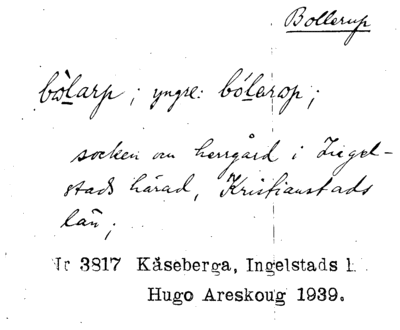 Bollerup
bòlarp; yngre: bólerop;
socken om herrgård i Ingel-
stads härad, Kristianstads
län;
Ir 3817 Kåseberga, Ingelstads h.
Hugo Areskoug 1939.